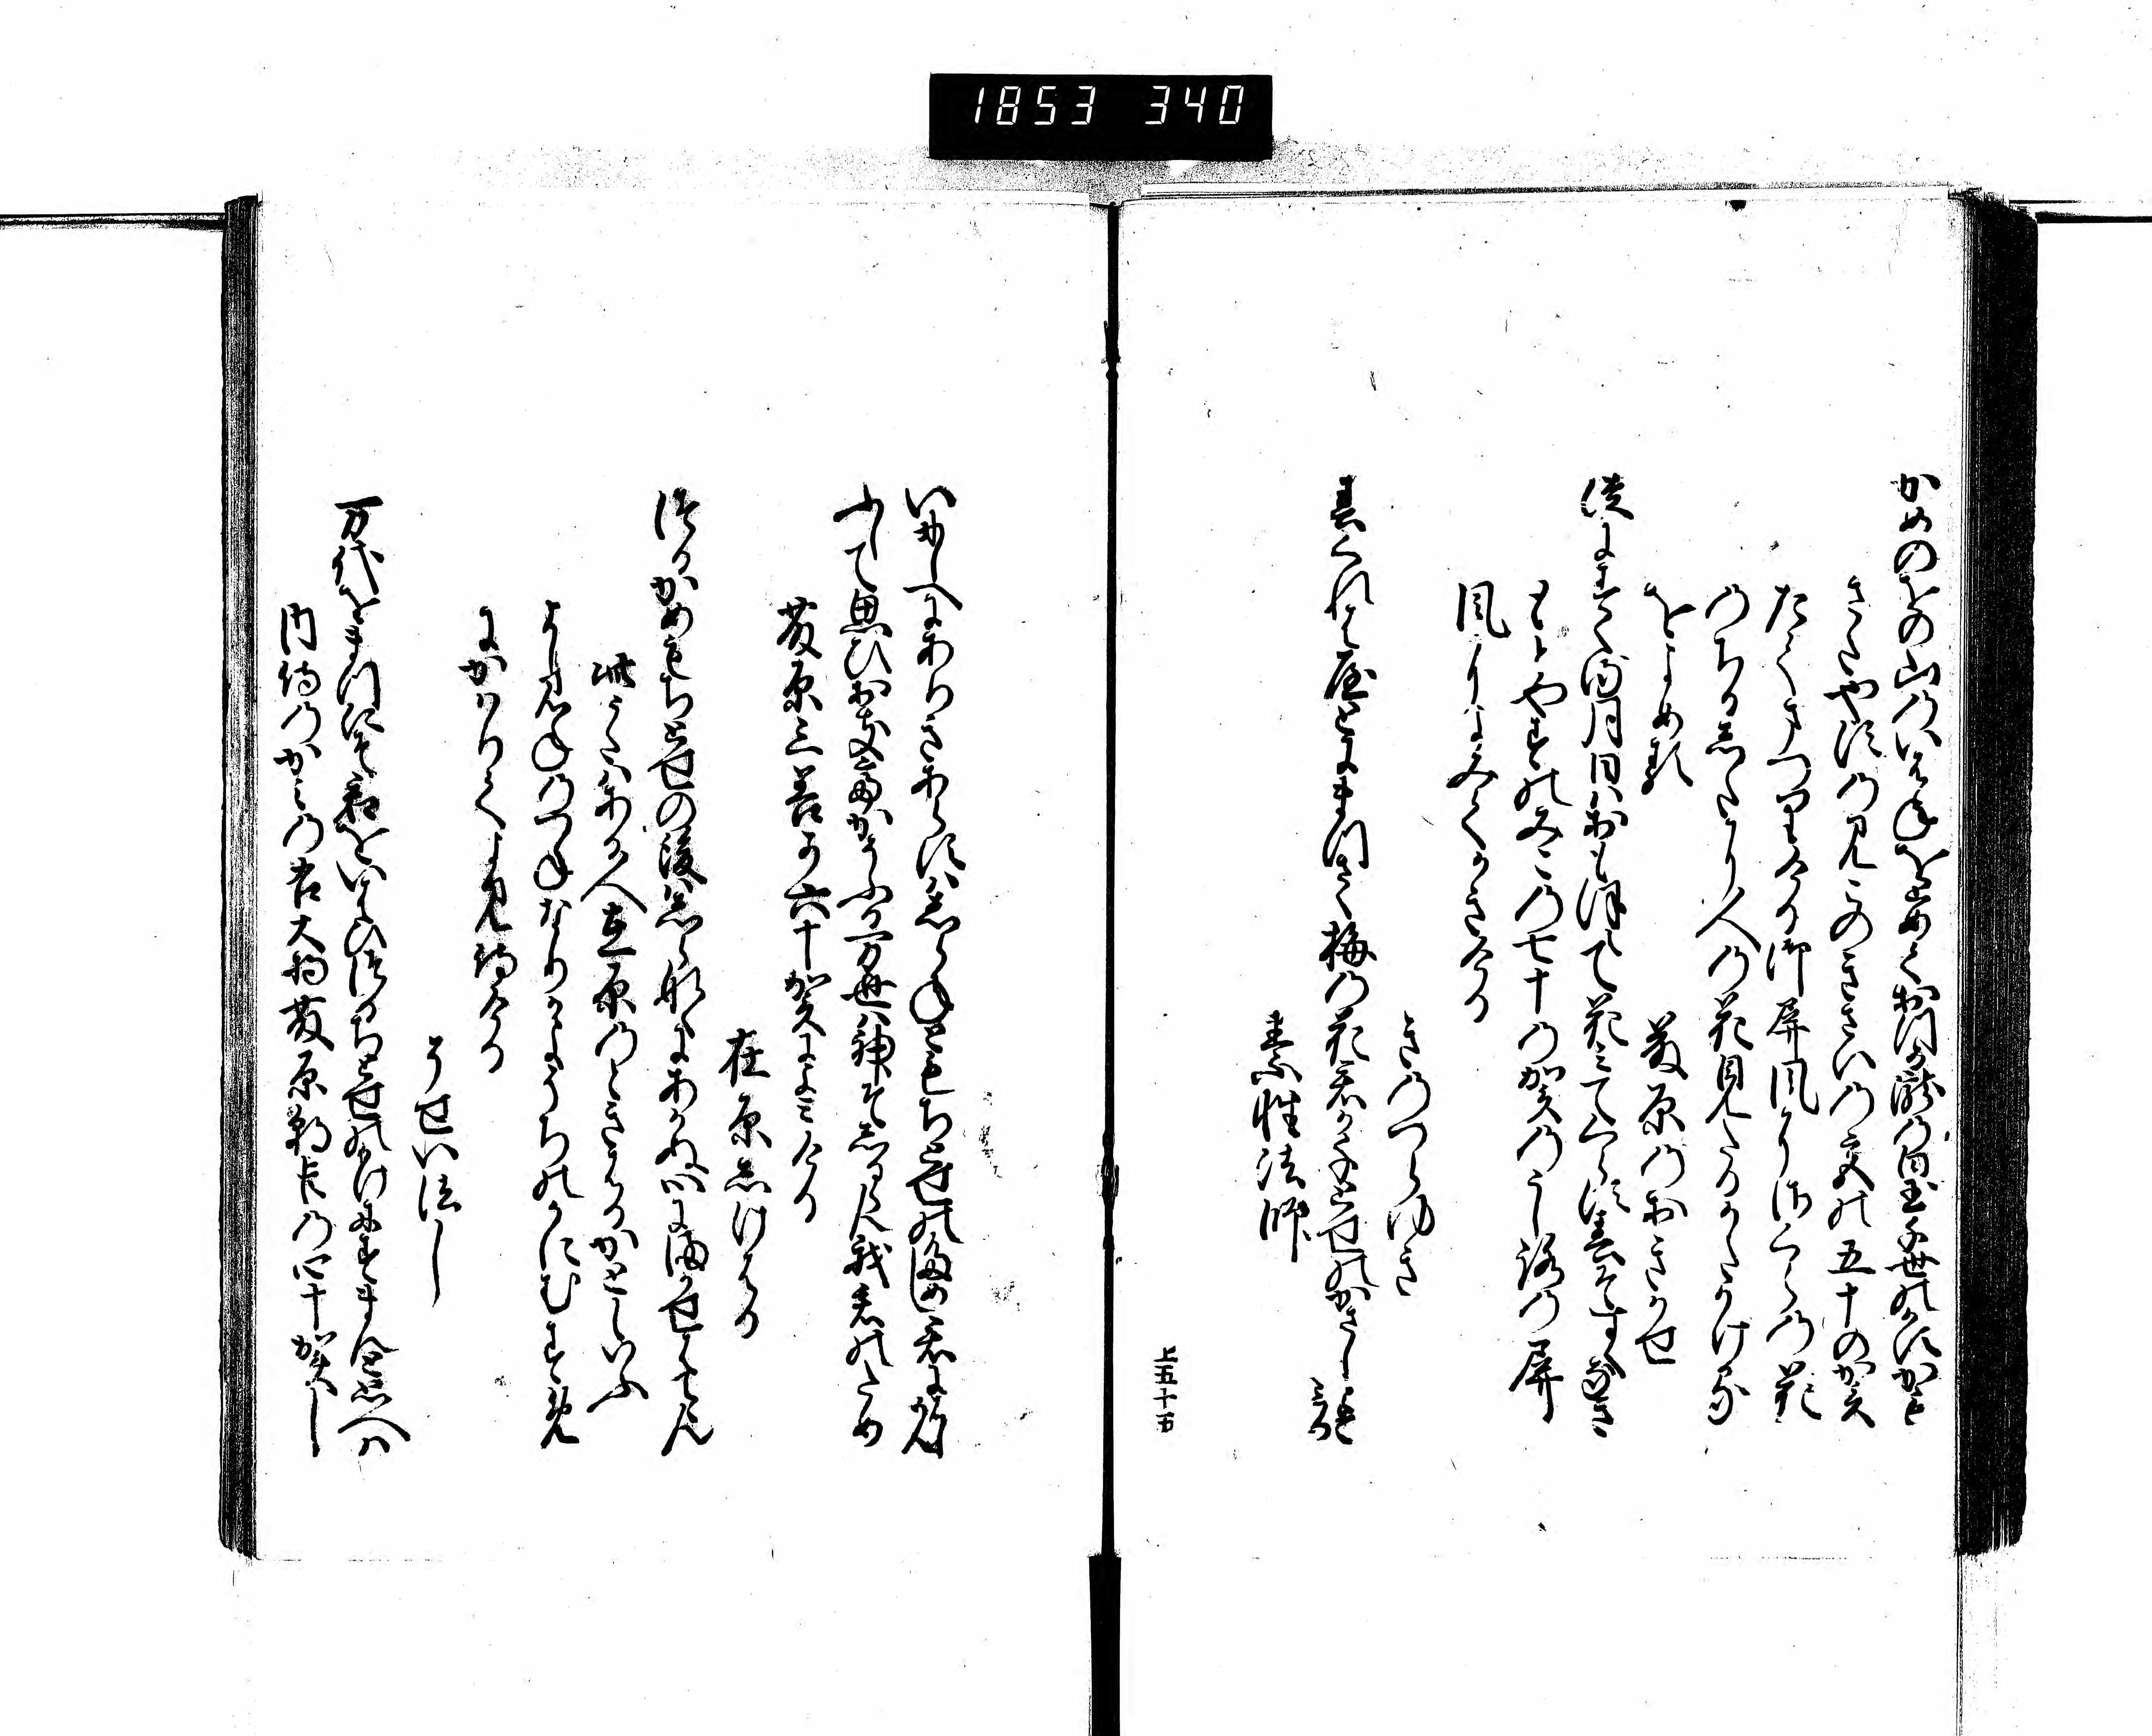 1853 340
かめのをの山のいはねをとめておつる瀧の白玉千世のかすかも
さたやすの見このきさいの宮の五十の賀
たてまつりける御屏風にさくらの花
のちるしたに人の花見たるかたかける
をよめる　藤原のおきかせ
徒にすくる月日はおもほえて花みてくらす春そすくなき
もとやすのみこの七十の賀のうしろの屏
風によみてかきける
きのつらゆき
春くれは屋とにまつさく梅の花君か千とせのかさしとそみる
素性法師
上五十五
いにしへにありきあらすはしらねともちとせのためし君にはしめん
ふして思ひおきてかそふる万世は神そしるらん我君のため
藤原三善か六十賀によみける
在原しけはる
つるかめもちとせの後はしらなくにあかぬ心にまかせはてゝん
此うたはある人在原のときはるかともいふ
よし見ねのつねなりかよそちの賀にむすめ
にかはりてよみ侍ける
そせい法し
万代をまつにそ君をいはひつるちとせのかけにすまんと思へは
内侍のかみの右大将藤原朝臣の四十賀し